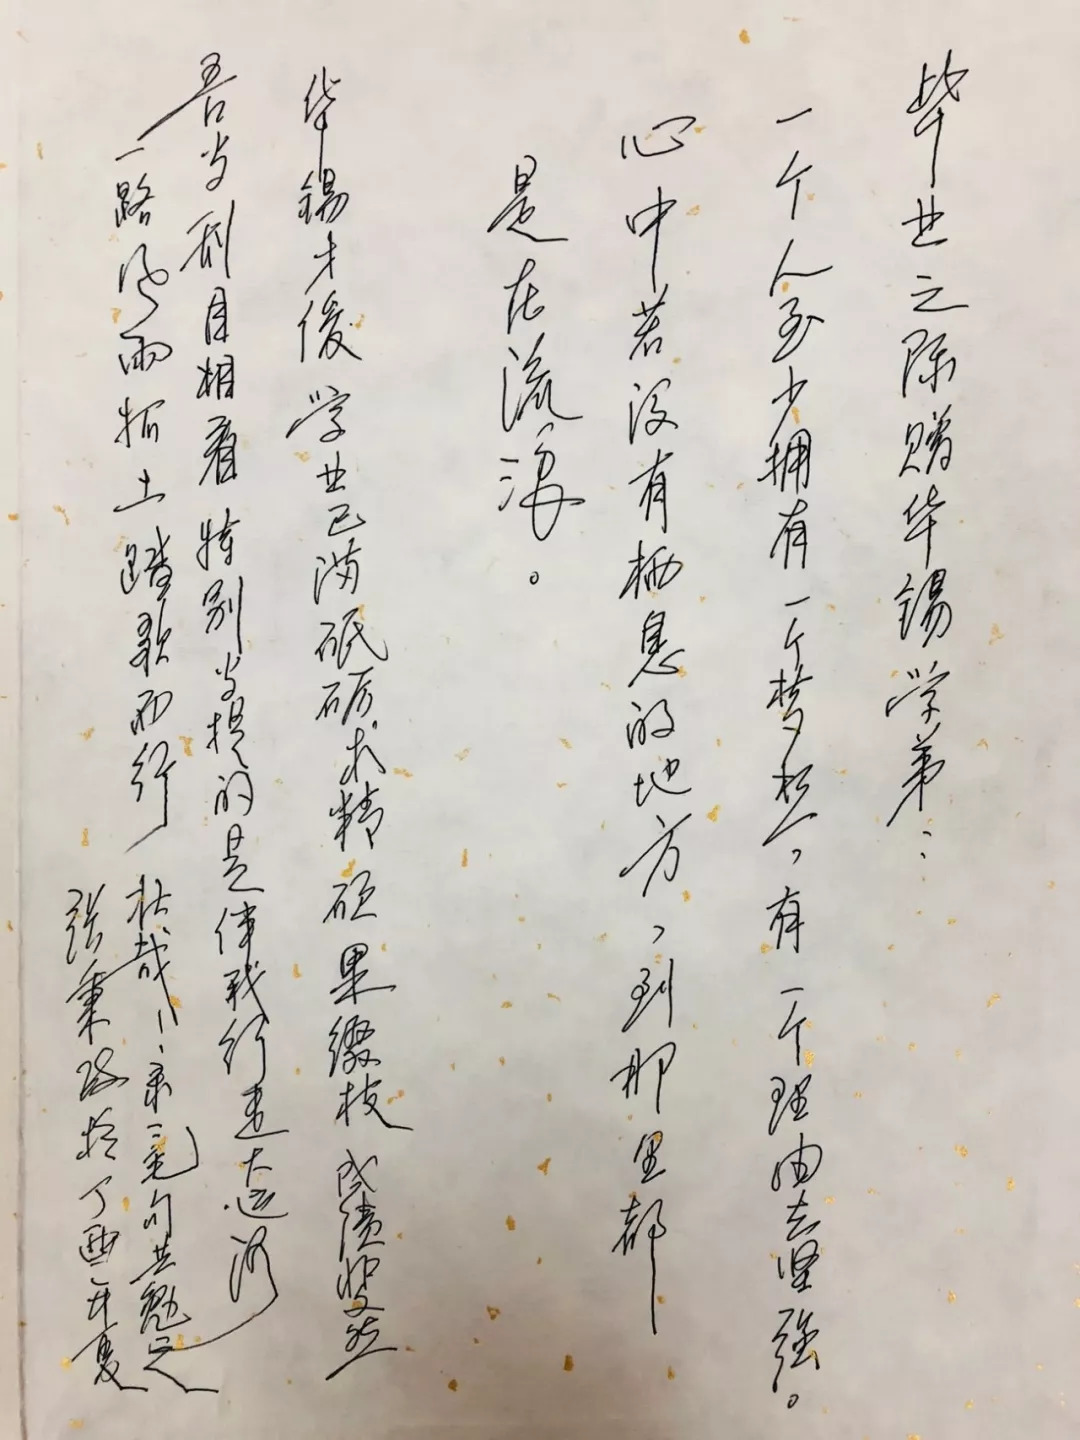 毕业之际赠华锡学弟：
一个人至少拥有一个梦想，有一个理由去坚强。
心中若没有栖息的地方，到那里都
是在流浪。
华锡才俊学业已满砥砺求精硕果缀枝成绩斐然
吾当刮目相看特别当提的是伴我行走大运河
一路风雨抓土踏歌而行
壮哉！句共勉之
张秉政于丁酉年夏